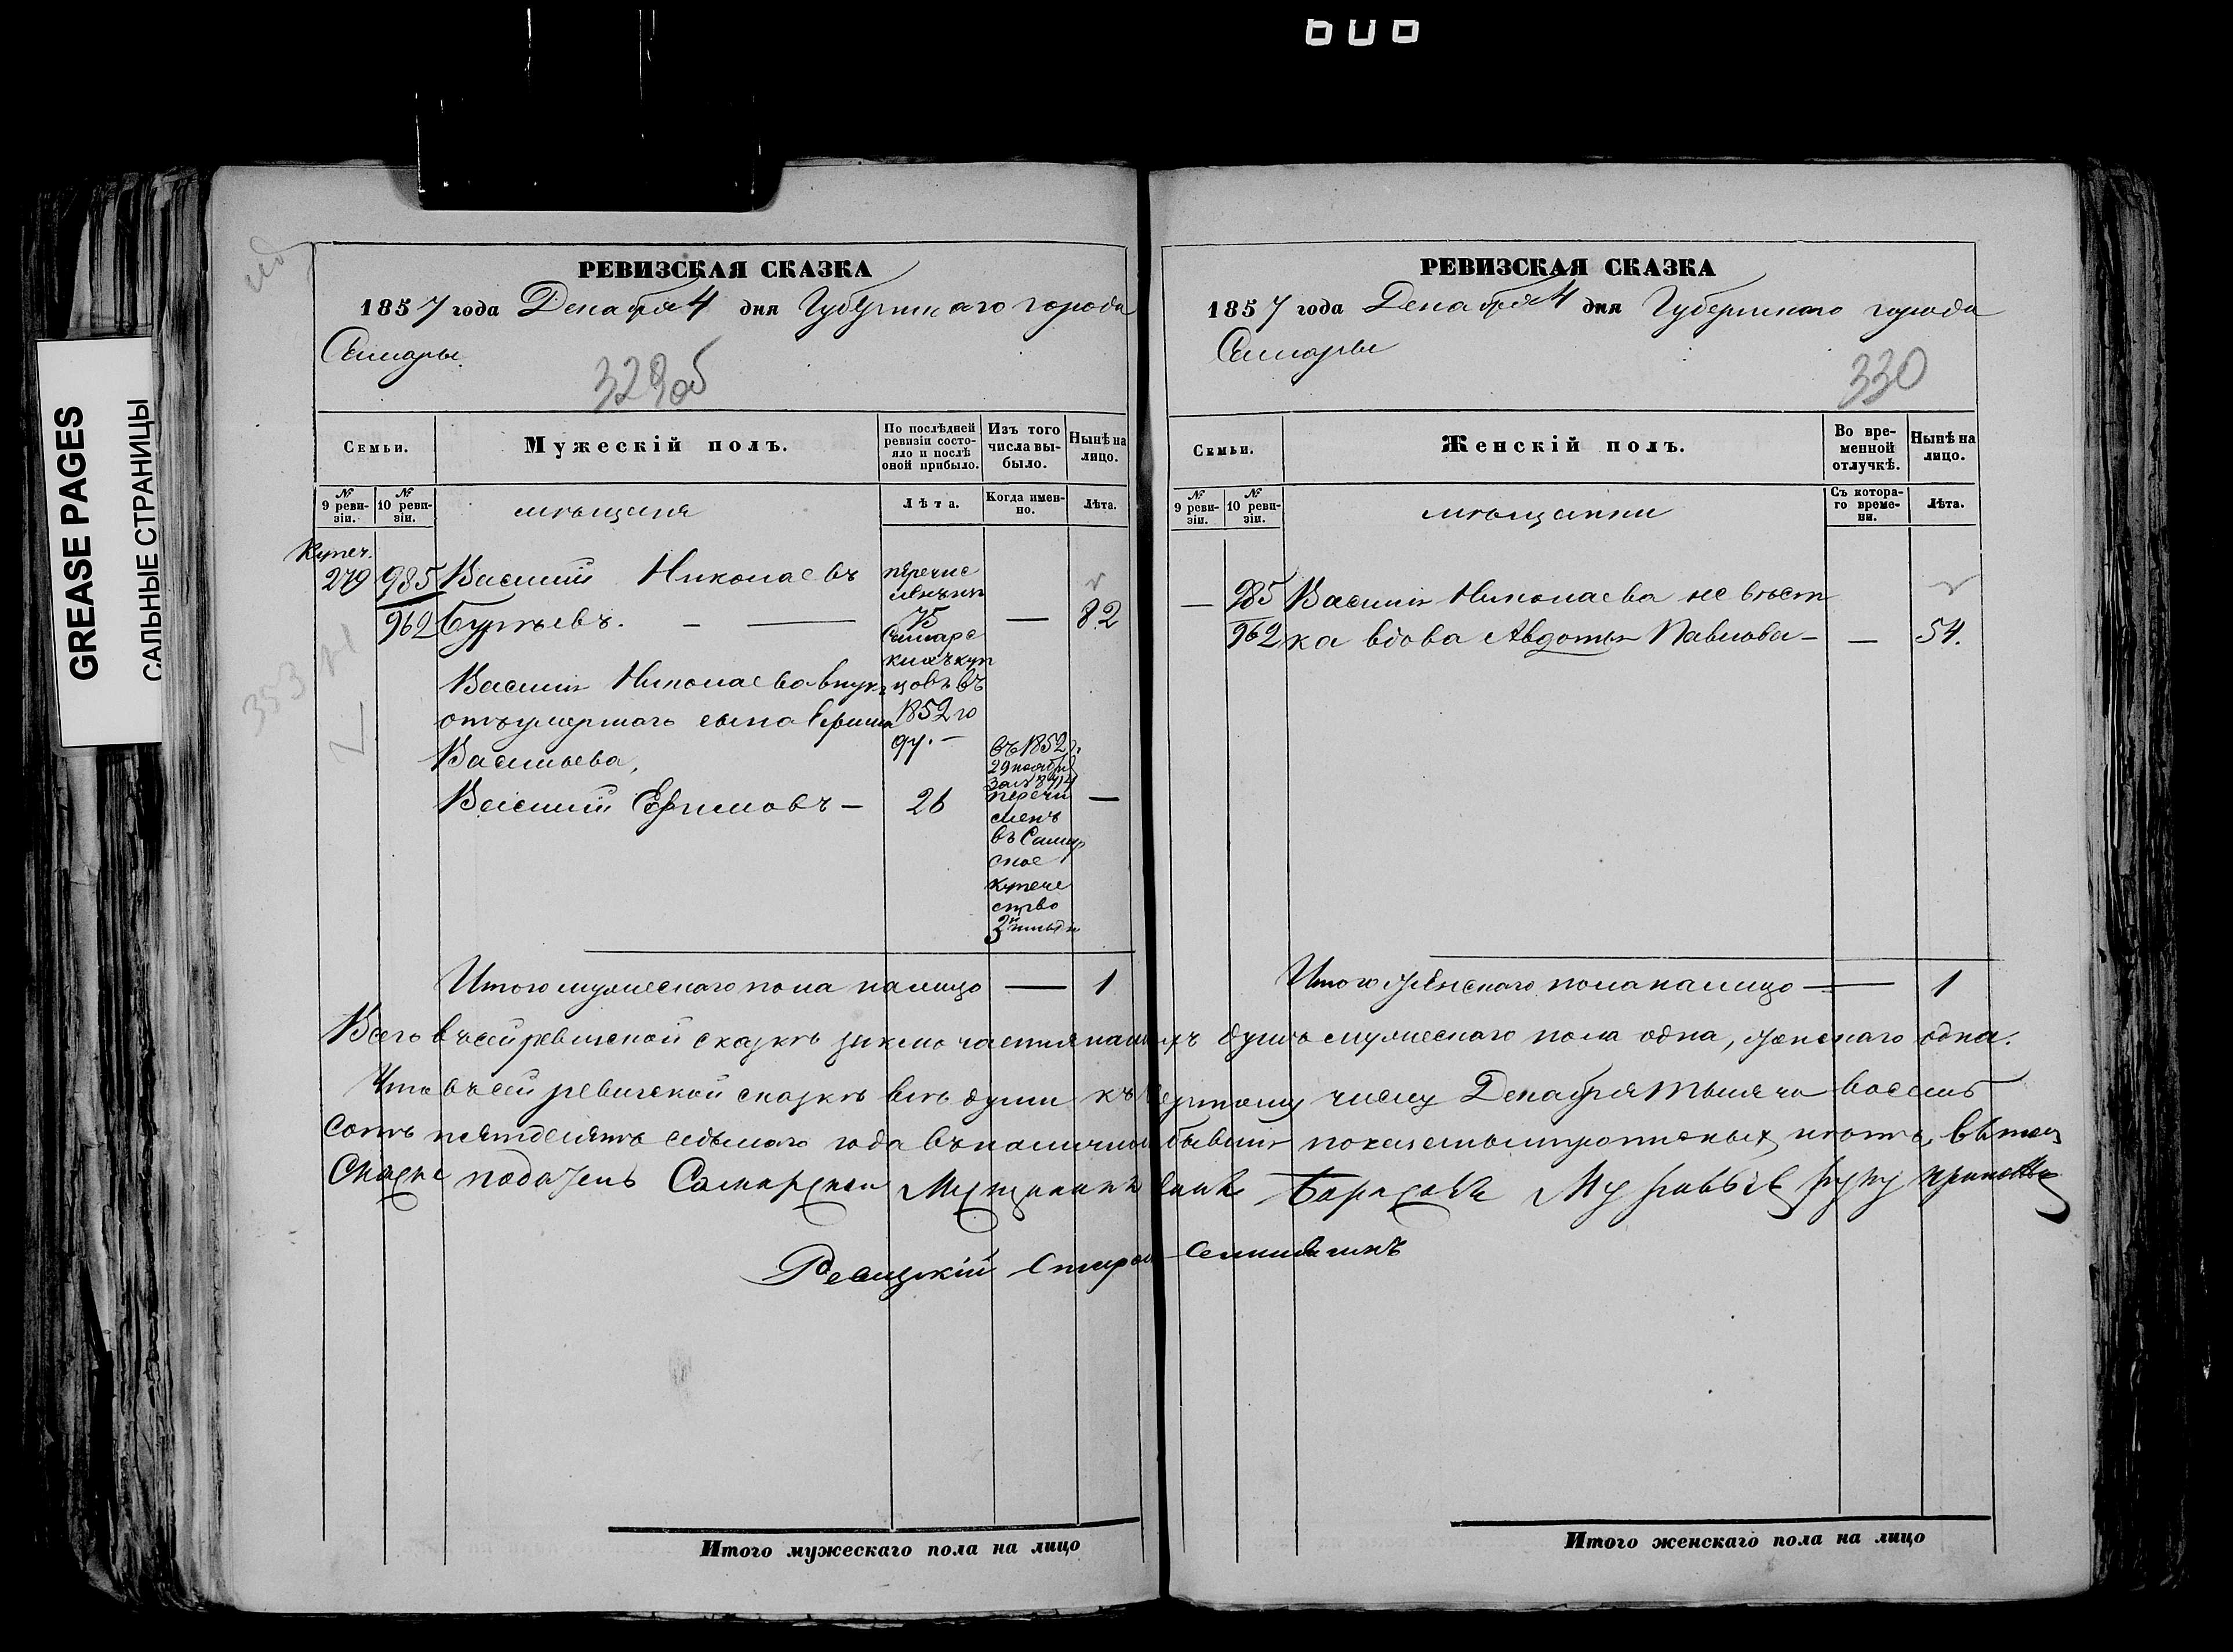 606
GREASE PAGES
САЛЬНЫЕ СТРАНИЦЫ
РЕВИЗСКАЯ СКАЗКА
1857 года Декабря 4 дня Губернскаго города
Самары.
329об
Семьи.
Мужескій полъ.
По послѣдней ревизіи состояло и послѣ оной прибыло.
Изъ того числа выбыло.
Нынѣ на лицо.
№ 9 ревизіи.
№ 10 ревизіи.
мѣщаня
Лѣта.
Когда именно.
Лѣта.
Купеч.
279 985 Василий Николаевъ
962
перечис
ленъ изъ
75
Самарс
кихъ куп
цовъ въ
1852 го
ду.
— 82
Василія Николаева внукъ
отъ умершаго сына Ефима
Васильева,
Василий Ефимовъ — 26
въ 1852 г.
29 ноября
за №
перечи
сленъ
въ Самар
ское
купече
ство
—
Итого мужескаго пола налицо — 1
РЕВИЗСКАЯ СКАЗКА
1857 года Декабря 4 дня Губернскаго города
Самары
330
Семьи.
Женскій полъ.
Во временной отлучкѣ.
Нынѣ на лицо.
№ 9 ревизіи.
№ 10 ревизіи.
мѣщанки
Съ котораго времени.
Лѣта.
— 985 Василія Николаева невѣст
962 ка вдова Авдотья Павлова — — 54.
Итого женскаго пола налицо — 1
Всего въ сей ревизской сказкѣ заключается душъ мужескаго пола одна, женскаго одна.
Что въ сей ревизской сказкѣ всѣ души къ числу Декабря тысяча восемь
сотъ пятдесятъ седьмаго года въ наличности бывшія показаны и нѣтъ, въ томъ
Сказкѣ податель Самарской Мещанинъ руку приложилъ
Итого мужескаго пола на лицо
Итого женскаго пола на лицо